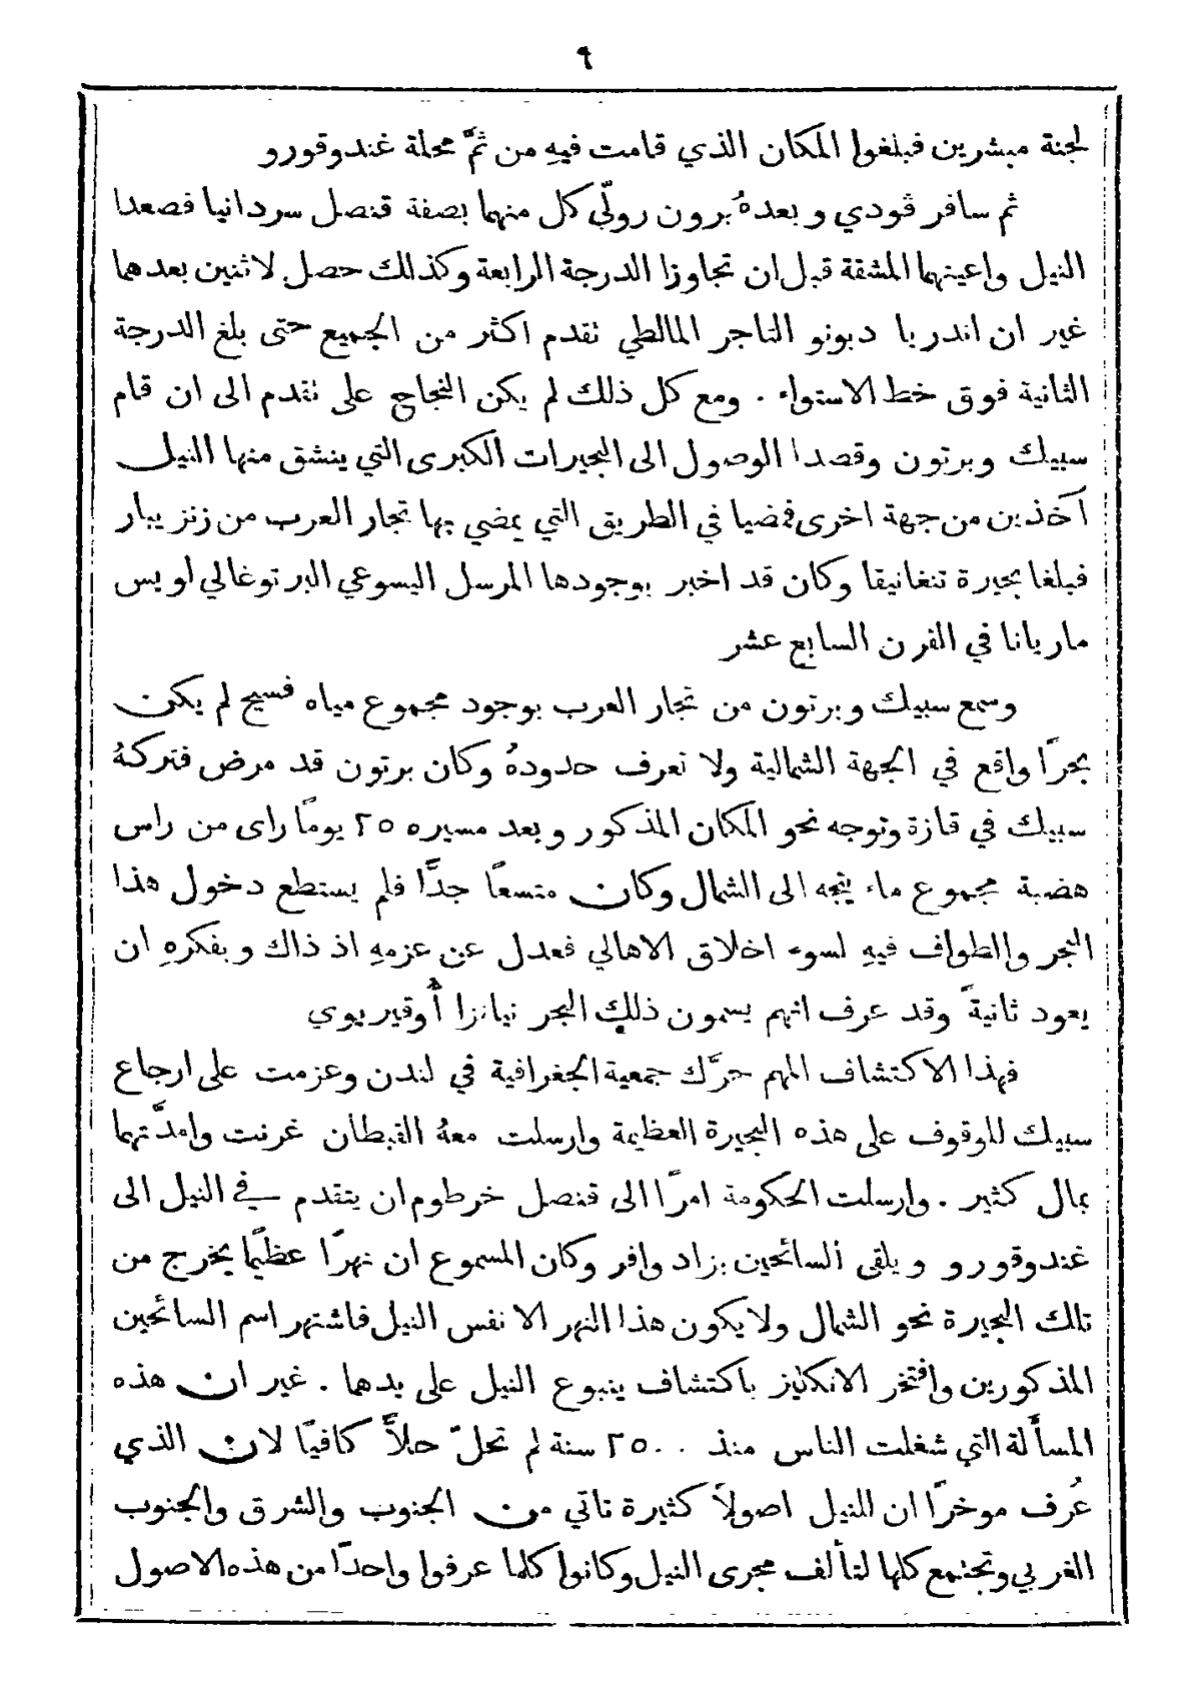 ٩
لجنة مبشرين فبلغوا المكان الذي قامت فيهِ من ثمَّ محلة غندوقورو
ثم سافر ڤودي وبعدهُ برون رولّي كل منهما بصفة قنصل سردانيا فصعدا
النيل واعيتهما المشقة قبل ان تجاوزا الدرجة الرابعة وكذلك حصل لاثنين بعدهما
غير ان اندريا دبونو التاجر المالطي تقدم اكثر من الجميع حتى بلغ الدرجة
الثانية فوق خط الاستواء . ومع كل ذلك لم يكن النجاح على تقدم الى ان قام
سبيك وبرتون وقصدا الوصول الى البحيرات الكبرى التي ينشق منها النيل
آخذين من جهة اخرى فمضيا في الطريق التي يمضي بها تجار العرب من زنزيبار
فبلغا بحيرة تنغانيقا وكان قد اخبر بوجودها المرسل اليسوعي البرتوغالي لويس
ماريانا في القرن السابع عشر
وسمع سبيك وبرتون من تجار العرب بوجود مجموع مياه فسيح لم يكن
بحرًا واقع في الجهة الشمالية ولا تعرف حدودهُ وكان برتون قد مرض فتركهُ
سبيك في قازة وتوجه نحو المكان المذكور وبعد مسيره ٢٥ يومًا راى من راس
هضبة مجموع ماء يتجه الى الشمال وكان متسعًا جدًّا فلم يستطع دخول هذا
البحر والطواف فيهِ لسوء اخلاق الاهالي فعدل عن عزمهِ اذ ذاك وبفكرهِ ان
يعود ثانيةً وقد عرف انهم يسمون ذلك البحر نيانزا أُوقيريوي
فهذا الاكتشاف المهم حرَّك جمعية الجغرافية في لندن وعزمت على ارجاع
سبيك للوقوف على هذه البحيرة العظيمة وارسلت معهُ القبطان غرنت وامدَّتهما
بمال كثير . وارسلت الحكومة امرًا الى قنصل خرطوم ان يتقدم في النيل الى
غندوقورو ويلقى السائحين بزاد وافر وكان المسموع ان نهرًا عظيمًا يخرج من
تلك البحيرة نحو الشمال ولا يكون هذا النهر الا نفس النيل فاشتهر اسم السائحين
المذكورين وافتخر الانكليز باكتشاف ينبوع النيل على يدهما . غير ان هذه
المسأَلة التي شغلت الناس منذ ٢٥٠٠ سنة لم تحلّ حلاًّ كافيًا لان الذي
عُرف موخرًا ان للنيل اصولاً كثيرة تاتي من الجنوب والشرق والجنوب
الغربي وتجتمع كلها لتأَلف مجرى النيل وكانوا كلما عرفوا واحدًا من هذه الاصول